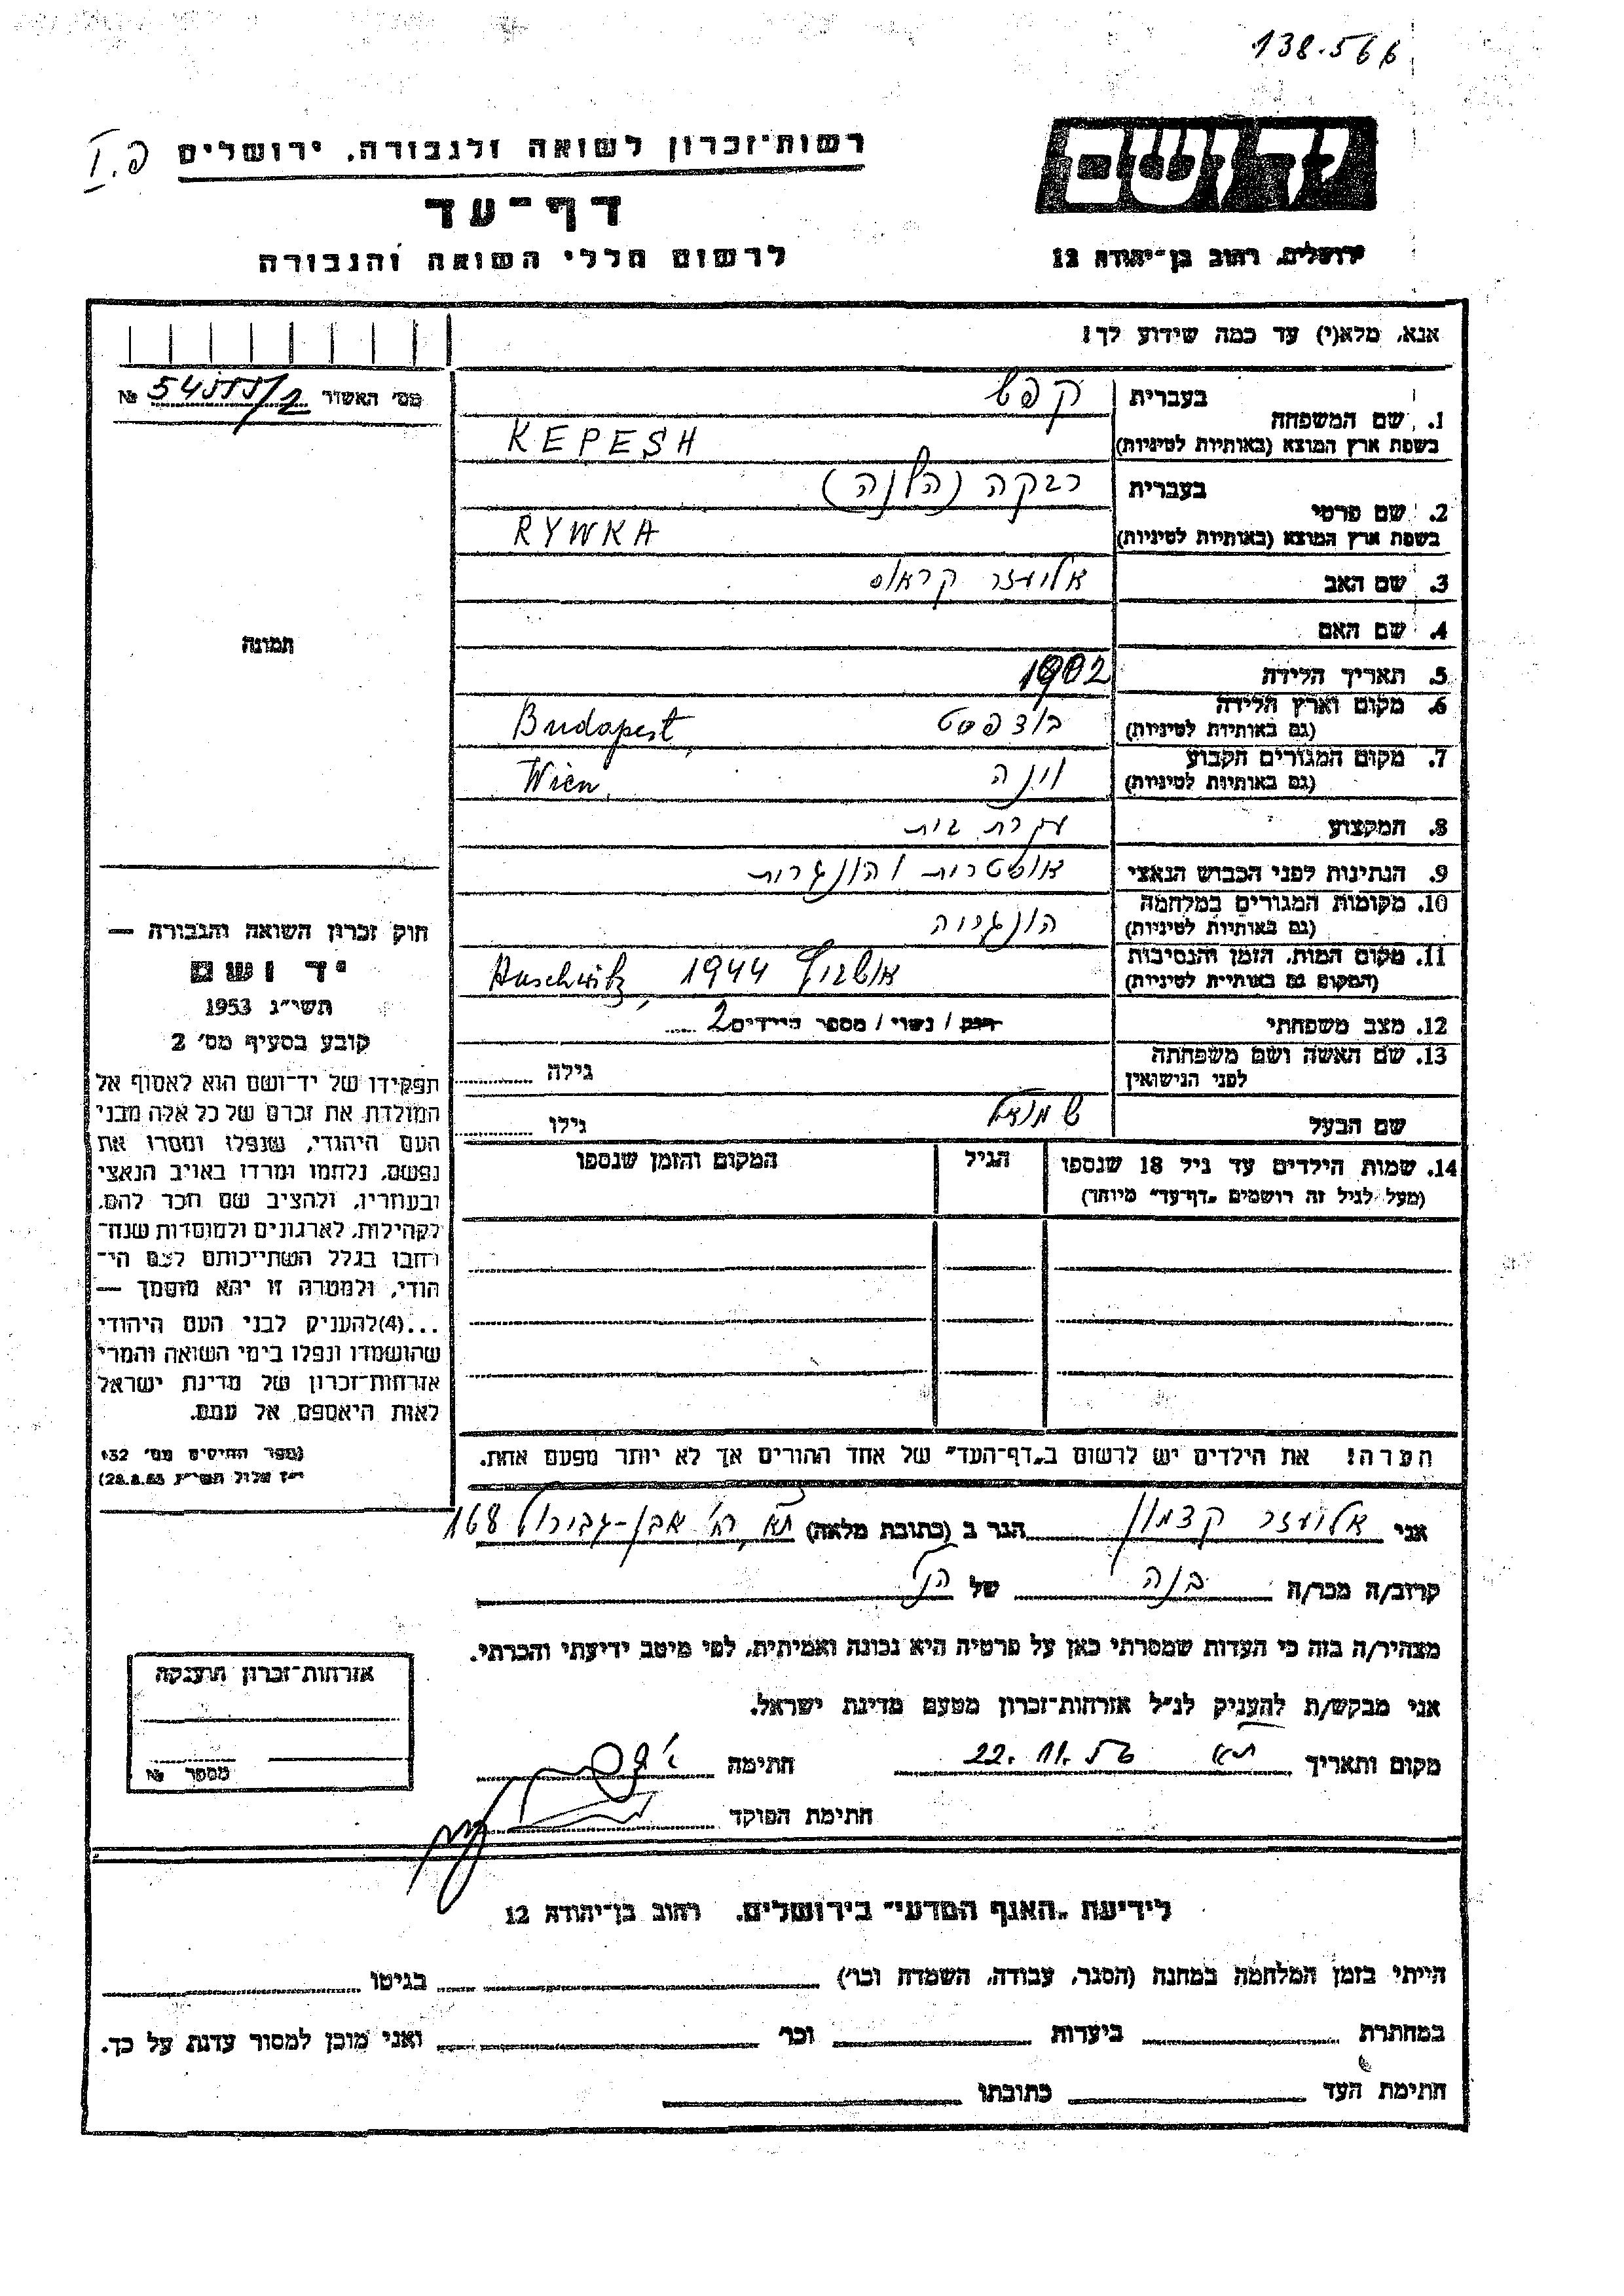 138.566
רשות־זכרון לשואה ולגבורה, ירושלים
דף־עד
לרשום חללי השואה והגבורה
יד ושם
ירושלים, רחוב בן־יהודה 12
אנא, מלא(י) עד כמה שידוע לך!
מס׳ האשדר №
1. שם המשפחה
בעברית קפש
בשפת ארץ המוצא (באותיות לטיניות) KEPESH
2. שם פרטי
בעברית רבקה (הלנה)
בשפת ארץ המוצא (באותיות לטיניות) RYWKA
3. שם האב אליעזר קראוס
4. שם האם
5. תאריך הלידה 1902
6. מקום וארץ הלידה
(גם באותיות לטיניות) בודפסט Budapest
7. מקום המגורים הקבוע
(גם באותיות לטיניות) וינה Wien
8. המקצוע עקרת בית
9. הנתינות לפני הכבוש הנאצי אוסטרית / הונגרית
10. מקומות המגורים במלחמה
(גם באותיות לטיניות) הונגריה
11. מקום המות, הזמן והנסיבות
(המקום גם באותיות לטיניות) אושויץ 1944 Auschwitz
12. מצב משפחתי רווק / נשוי / מספר הילדים 2
13. שם האשה ושם משפחתה
לפני הנישואין גילה
שם הבעל שמואל גילו
14. שמות הילדים עד גיל 18 שנספו הגיל המקום והזמן שנספו
(מעל לגיל זה רושמים „דף־עד״ מיוחד)
הערה! את הילדים יש לרשום ב„דף־העד״ של אחד ההורים אך לא יותר מפעם אחת.
תמונה
חוק זכרון השואה והגבורה —
יד ושם
תשי״ג 1953
קובע בסעיף מס׳ 2
תפקידו של יד־ושם הוא לאסוף אל
המולדת את זכרם של כל אלה מבני
העם היהודי, שנפלו ומסרו את
נפשם, נלחמו ומרדו באויב הנאצי
ובעוזריו, ולהציב שם וזכר להם,
לקהילות, לארגונים ולמוסדות שנח־
רבו בגלל השתייכותם לעם הי־
הודי, ולמטרה זו יהא מוסמך —
...(4)להעניק לבני העם היהודי
שהושמדו ונפלו בימי השואה והמרי
אזרחות־זכרון של מדינת ישראל
לאות היאספם אל עמם.
(ספר החוקים מס׳ 132
י״ז אלול תשי״ג 28.8.53)
אני אליעזר קצמון הגר ב (כתובת מלאה) ת״א, רח׳ אבן-גבירול 168
קרוב/ה מכר/ה בנה של הנ״ל
מצהיר/ה בזה כי העדות שמסרתי כאן על פרטיה היא נכונה ואמיתית, לפי מיטב ידיעתי והכרתי.
אני מבקש/ת להעניק לנ״ל אזרחות־זכרון מטעם מדינת ישראל.
מקום ותאריך ת״א 22.11.56 חתימה
חתימת הפוקד
אזרחות־זכרון הוענקה
מספר №
לידיעת „האגף המדעי״ בירושלים, רחוב בן־יהודה 12
הייתי בזמן המלחמה במחנה (הסגר, עבודה, השמדה וכו׳) בגיטו
במחתרת ביערות וכו׳ ואני מוכן למסור עדות על כך.
חתימת העד כתובתו